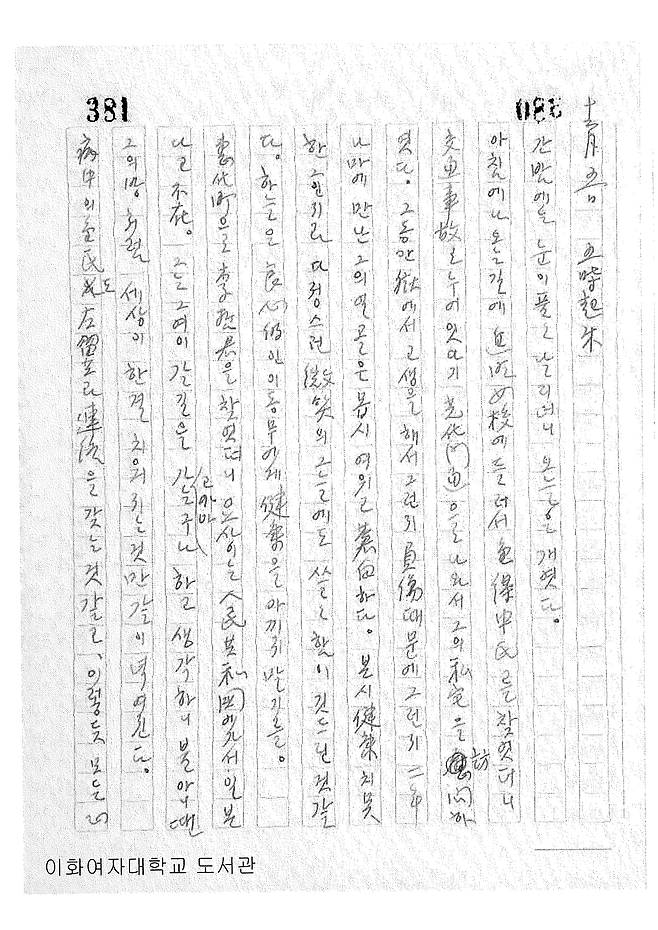 381
380
十二月 五日 五時起床
간밤에는 눈이 풀 날리더니 오늘은 개였다.
아침에 나오는 길에 女校에 들러서 金 中民를 찾었더니
交通事故로 누어있다기 光化門通으로 나와서 그의 私宅을 訪問하
였다. 그동안 獄에서 고생을 해서 그런지 負傷 때문에 그런지 二年
나마에 만난 그의 얼골은 몹시 여위고 蒼白하다. 본시 健康치 못
한 그인지라 다정스런 微笑의 그늘에도 쓸쓸함이 깃드린 것 같
다. 하늘은 良心的인 이 동무에게 健康을 아끼지 말기를.
惠化町으로 李 君을 찾었더니 은 人民共和國에 가서 일 본
다고 不在. 그는 그여이 갈길을 갔구나 하고 생각하니 불 아니땐
그의 방처럼 세상이 한결 치워지는것만 같이 여긴다.
病中의 金民도 左翼 과 連絡을 갖는 것 같고, 이렇듯 모든
이화여자대학교 도서관